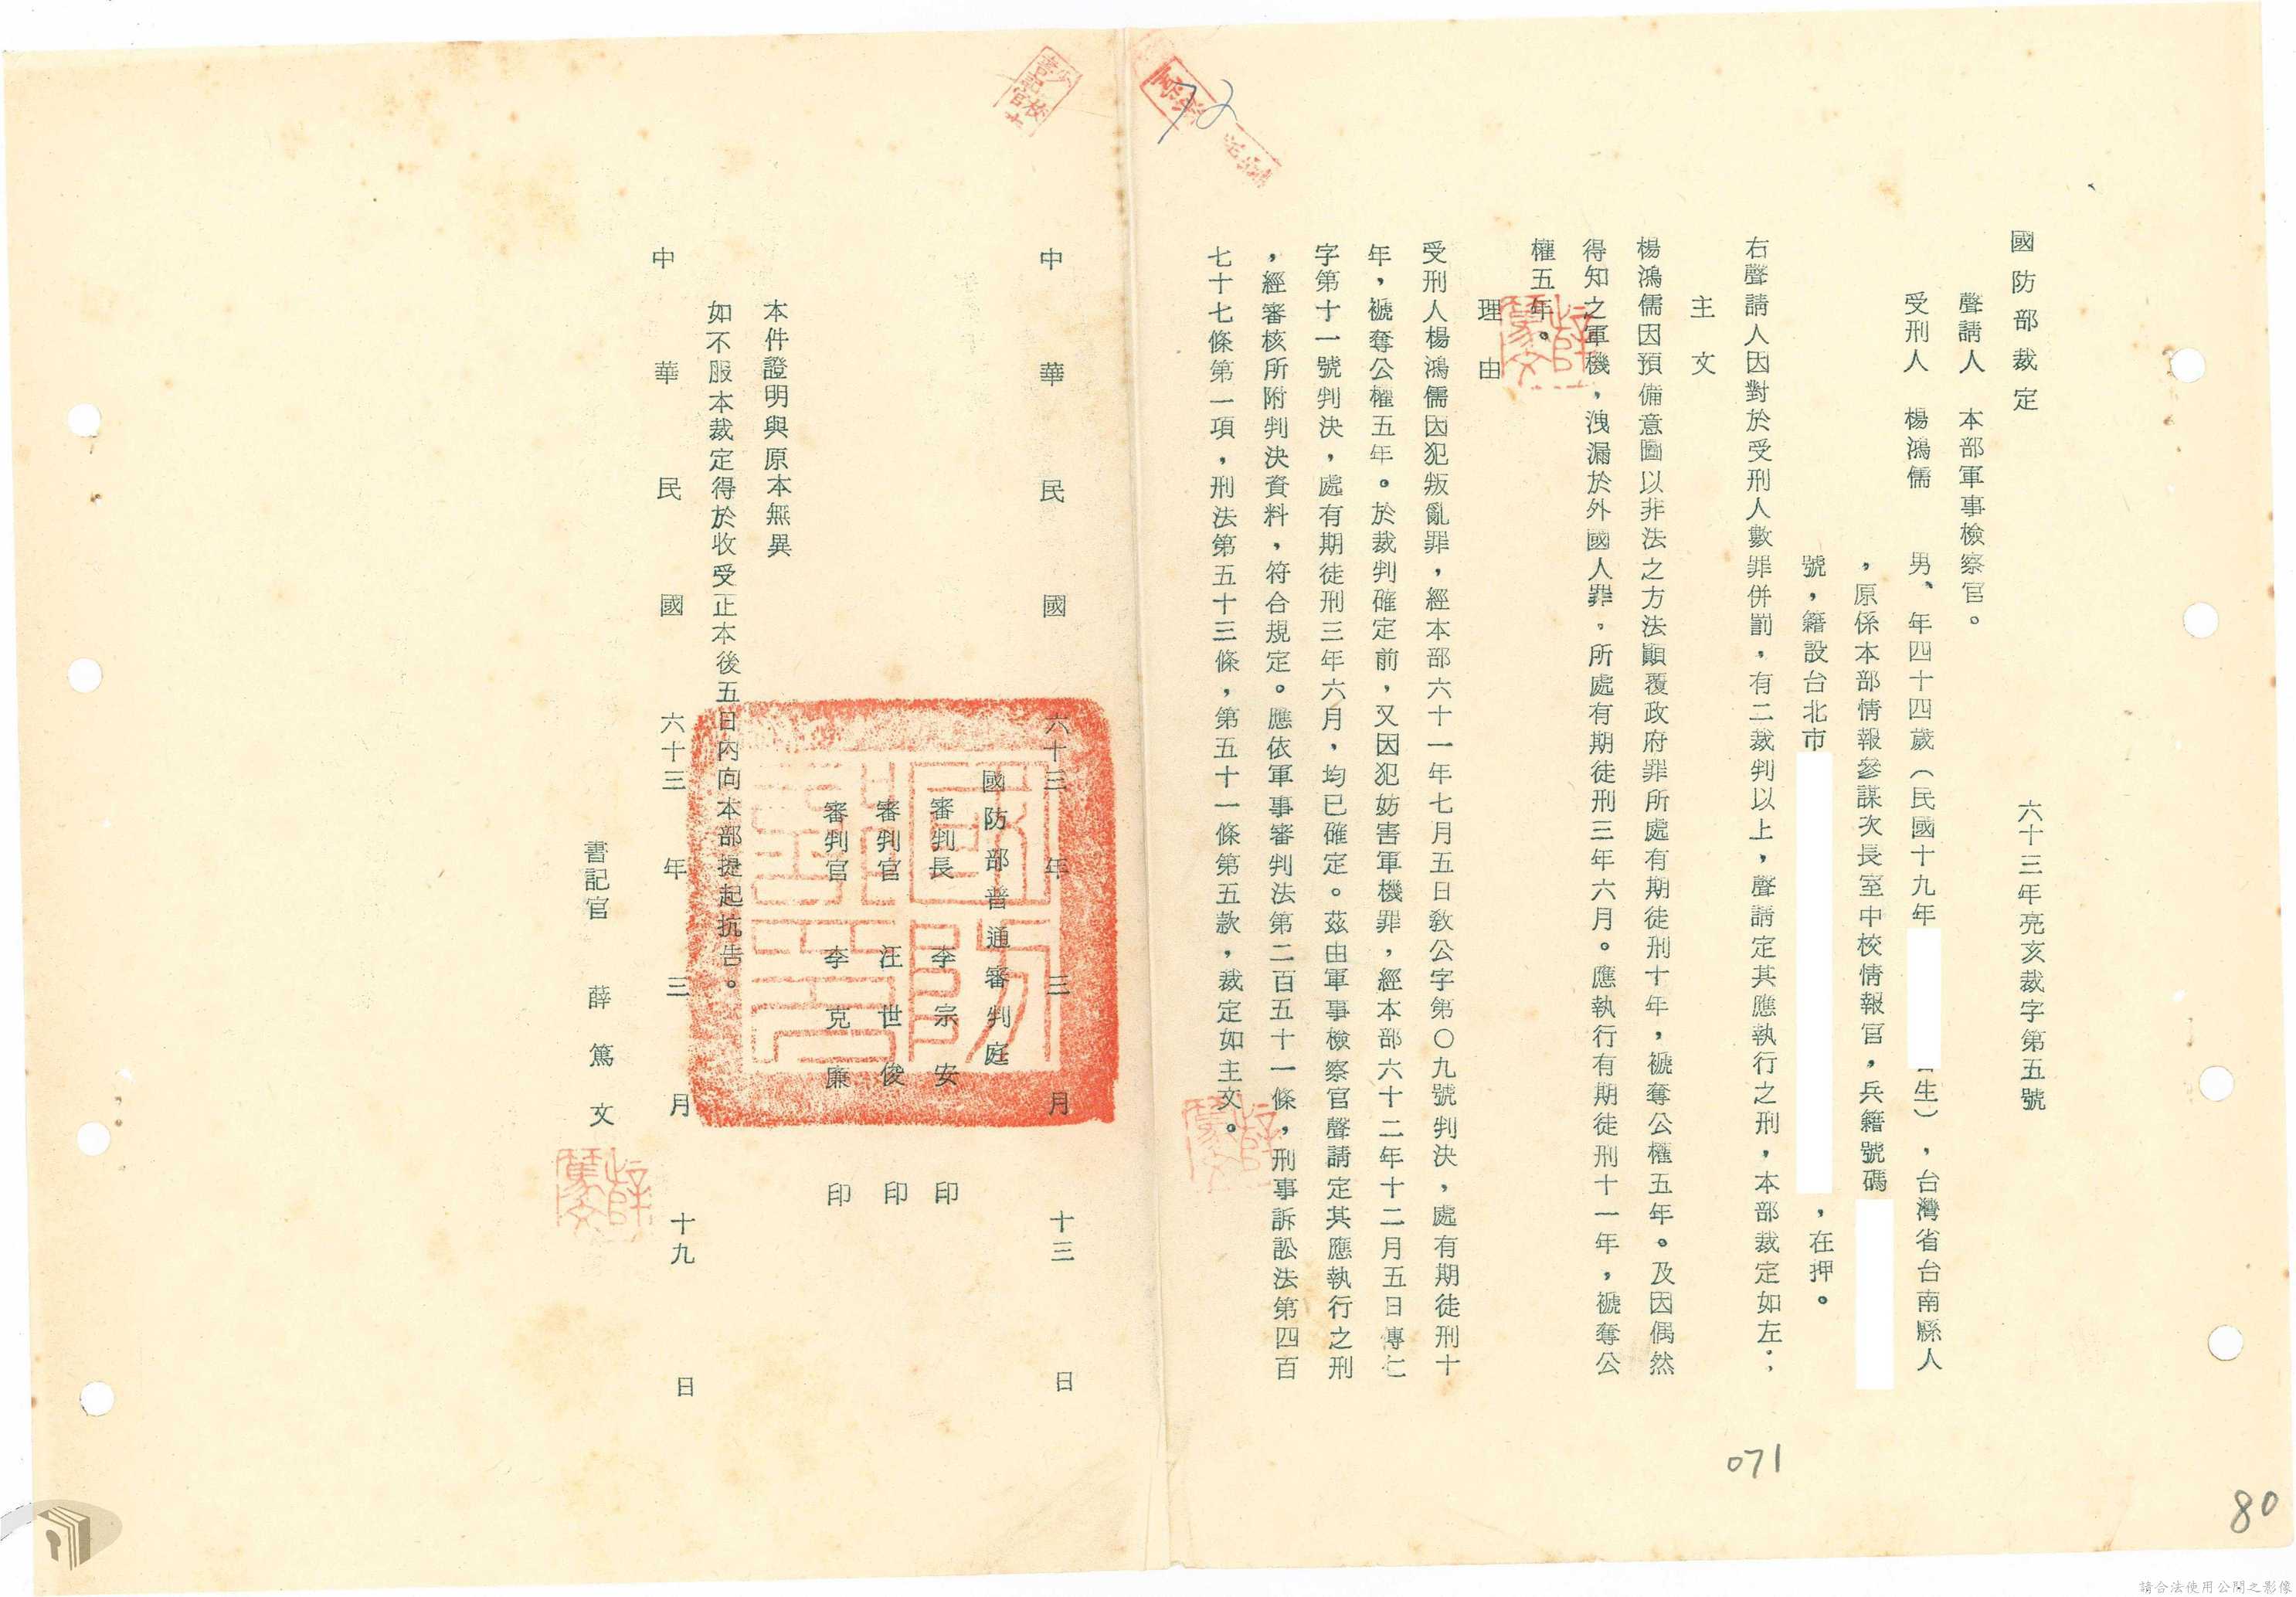 國防部裁定
六十三年亮亥裁字第五號
聲請人　本部軍事檢察官。
受刑人　楊鴻儒　男、年四十四歲（民國十九年　日生），台灣省台南縣人
，原係本部情報參謀次長室中校情報官，兵籍號碼
號，籍設台北市　，在押。
右聲請人因對於受刑人數罪併罰，有二裁判以上，聲請定其應執行之刑，本部裁定如左：
主文
楊鴻儒因預備意圖以非法之方法顚覆政府罪所處有期徒刑十年，褫奪公權五年。及因偶然
得知之軍機，洩漏於外國人罪，所處有期徒刑三年六月。應執行有期徒刑十一年，褫奪公
權五年。
理由
受刑人楊鴻儒因犯叛亂罪，經本部六十一年七月五日敎公字第〇九號判決，處有期徒刑十
年，褫奪公權五年。於裁判確定前，又因犯妨害軍機罪，經本部六十二年十二月五日傳仁
字第十一號判決，處有期徒刑三年六月，均已確定。茲由軍事檢察官聲請定其應執行之刑
，經審核所附判決資料，符合規定。應依軍事審判法第二百五十一條，刑事訴訟法第四百
七十七條第一項，刑法第五十三條，第五十一條第五款，裁定如主文。
中華民國六十三年三月十三日
國防部普通審判庭
審判長　李宗安　印
審判官　汪世俊　印
審判官　李克廉　印
本件證明與原本無異
如不服本裁定得於收受正本後五日內向本部提起抗告。
中華民國六十三年三月十九日
書記官　薛篤文
薛篤文
72
071
80
請合法使用公開之影像